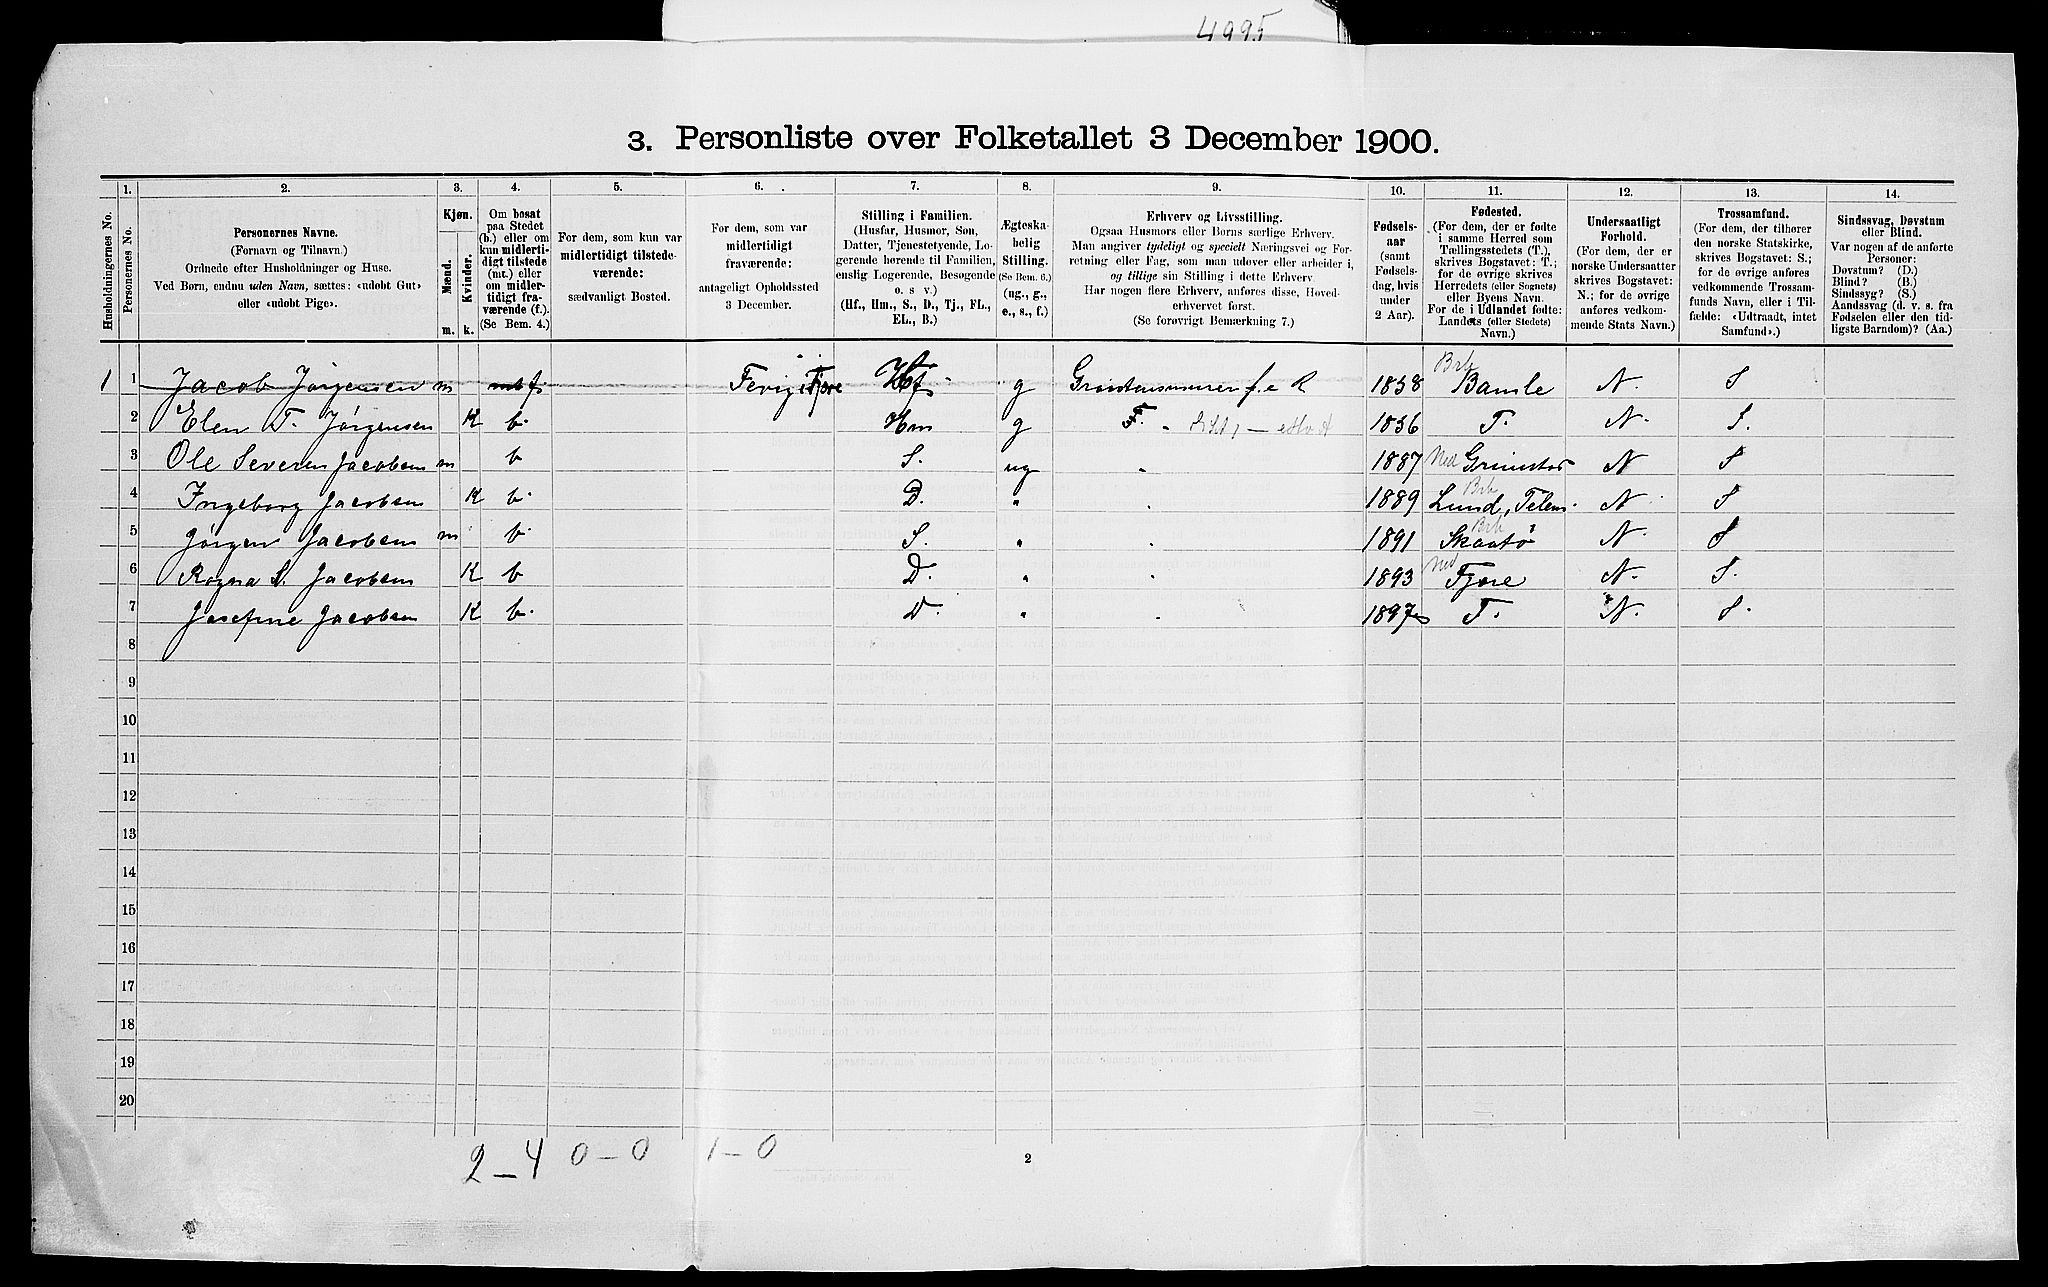 4995
3. Personliste over Folketallet 3 December 1900.
1. 2. 3. 4. 5. 6. 7. 8. 9. 10. 11. 12. 13. 14.
Husholdningernes No.
Personernes No.
Personernes Navne.
(Fornavn og Tilnavn.)
Ordnede efter Husholdninger og Huse.
Ved Børn, endnu uden Navn, sættes: «udobt Gut»
eller «udobt Pige».
Kjøn.
Mænd. Kvinder.
m. k.
Om bosat
paa Stedet
(b.) eller om
kun midlerti-
digt tilstede
(mt.) eller
om midler-
tidigt fra-
værende (f.).
(Se Bem. 4.)
For dem, som kun var
midlertidigt tilstede-
værende:
sædvanligt Bosted.
For dem, som var
midlertidigt
fraværende:
antageligt Opholdssted
3 December.
Stilling i Familien.
(Husfar, Husmor, Søn,
Datter, Tjenestetyende, Lo-
gerende hørende til Familien,
enslig Logerende, Besøgende
o. s. v.)
(Hf., Hm., S., D., Tj., FL.,
EL., B.)
Ægteska-
belig
Stilling.
(Se Bem. 6.)
(ug., g.,
e., s., f.)
Erhverv og Livsstilling.
Ogsaa Husmors eller Børns særlige Erhverv.
Man angiver tydeligt og specielt Næringsvei og For-
retning eller Fag, som man udover eller arbeider i,
og tillige sin Stilling i dette Erhverv.
Har nogen flere Erhverv, anføres disse, Hoved-
erhvervet først.
(Se forøvrigt Bemærkning 7.)
Fødsels-
aar
(samt
Fødsels-
dag, hvis
under
2 Aar).
Fødested.
(For dem, der er fødte
i samme Herred som
Tællingsstedets (T.),
skrives Bogstavet: T.;
for de øvrige skrives
Herredets (eller Sognets)
eller Byens Navn.
For de i Udlandet fødte:
Landets (eller Stedets)
Navn.)
Undersaatligt
Forhold.
(For dem, der er
norske Undersaatter
skrives Bogstavet:
N.; for de øvrige
anføres vedkom-
mende Stats Navn.)
Trossamfund.
(For dem, der tilhører
den norske Statskirke,
skrives Bogstavet: S.;
for de øvrige anføres
vedkommende Trossam-
funds Navn, eller i Til-
fælde: «Udtraadt, intet
Samfund».)
Sindssvag, Døvstum
eller Blind.
Var nogen af de anførte
Personer:
Døvstum? (D.)
Blind? (B.)
Sindssyg? (S.)
Aandssvag (d. v. s. fra
Fødselen eller den tid-
ligste Barndom)? (Aa.)
1 1 Jacob Jørgensen m mt f Fevig i Fjære Hf g f. e R 1838 Brb Bamle N. S
2 Elen T. Jørgensen K b. Hm g F. 1836 T. N. S.
3 Ole Severen Jacobsen m b S. ug " 1887 Ned Grimstad N S
4 Ingeborg Jacobsen K b. D. " " 1889 Brb Lund, Telem. N S
5 Jørgen Jacobsen m b. S. " " 1891 Brb Skaatø N. S
6 Ragna S. Jacobsen K b D. " " 1893 Ned Fjære N. S.
7 Josefine Jacobsen K b. D. " " 1897 T. N. S.
8
9
10
11
12
13
14
15
16
17
18
19
20
2 – 4 0 – 0 1 – 0
2